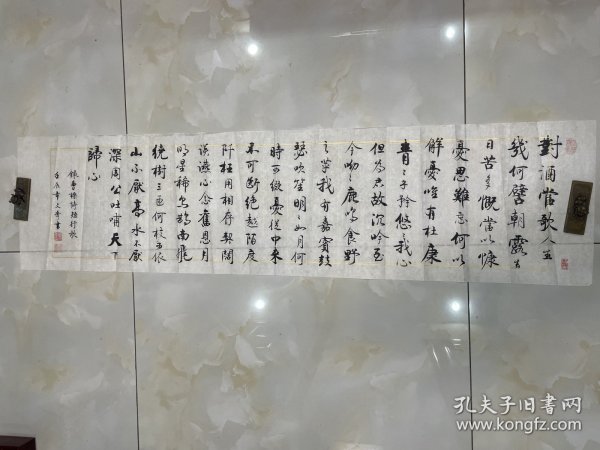 對酒當歌人生
幾何譬朝露去
日苦多慨當以慷
憂思難忘何以
解憂唯有杜康
青々子衿悠我心
但為君故沉吟至
今呦々鹿鳴食野
之苹我有嘉賓鼓
瑟吹笙明明如月何
時可掇憂從中來
不可断绝越陌度
阡枉用相存契闊
談讌心念舊恩月
明星稀烏鵲南飛
繞樹三匝何枝可依
山不厭高水不厭
深周公吐哺天下
歸心
錄曹操詩短行歌
孔夫子旧书网
www.kongfz.com